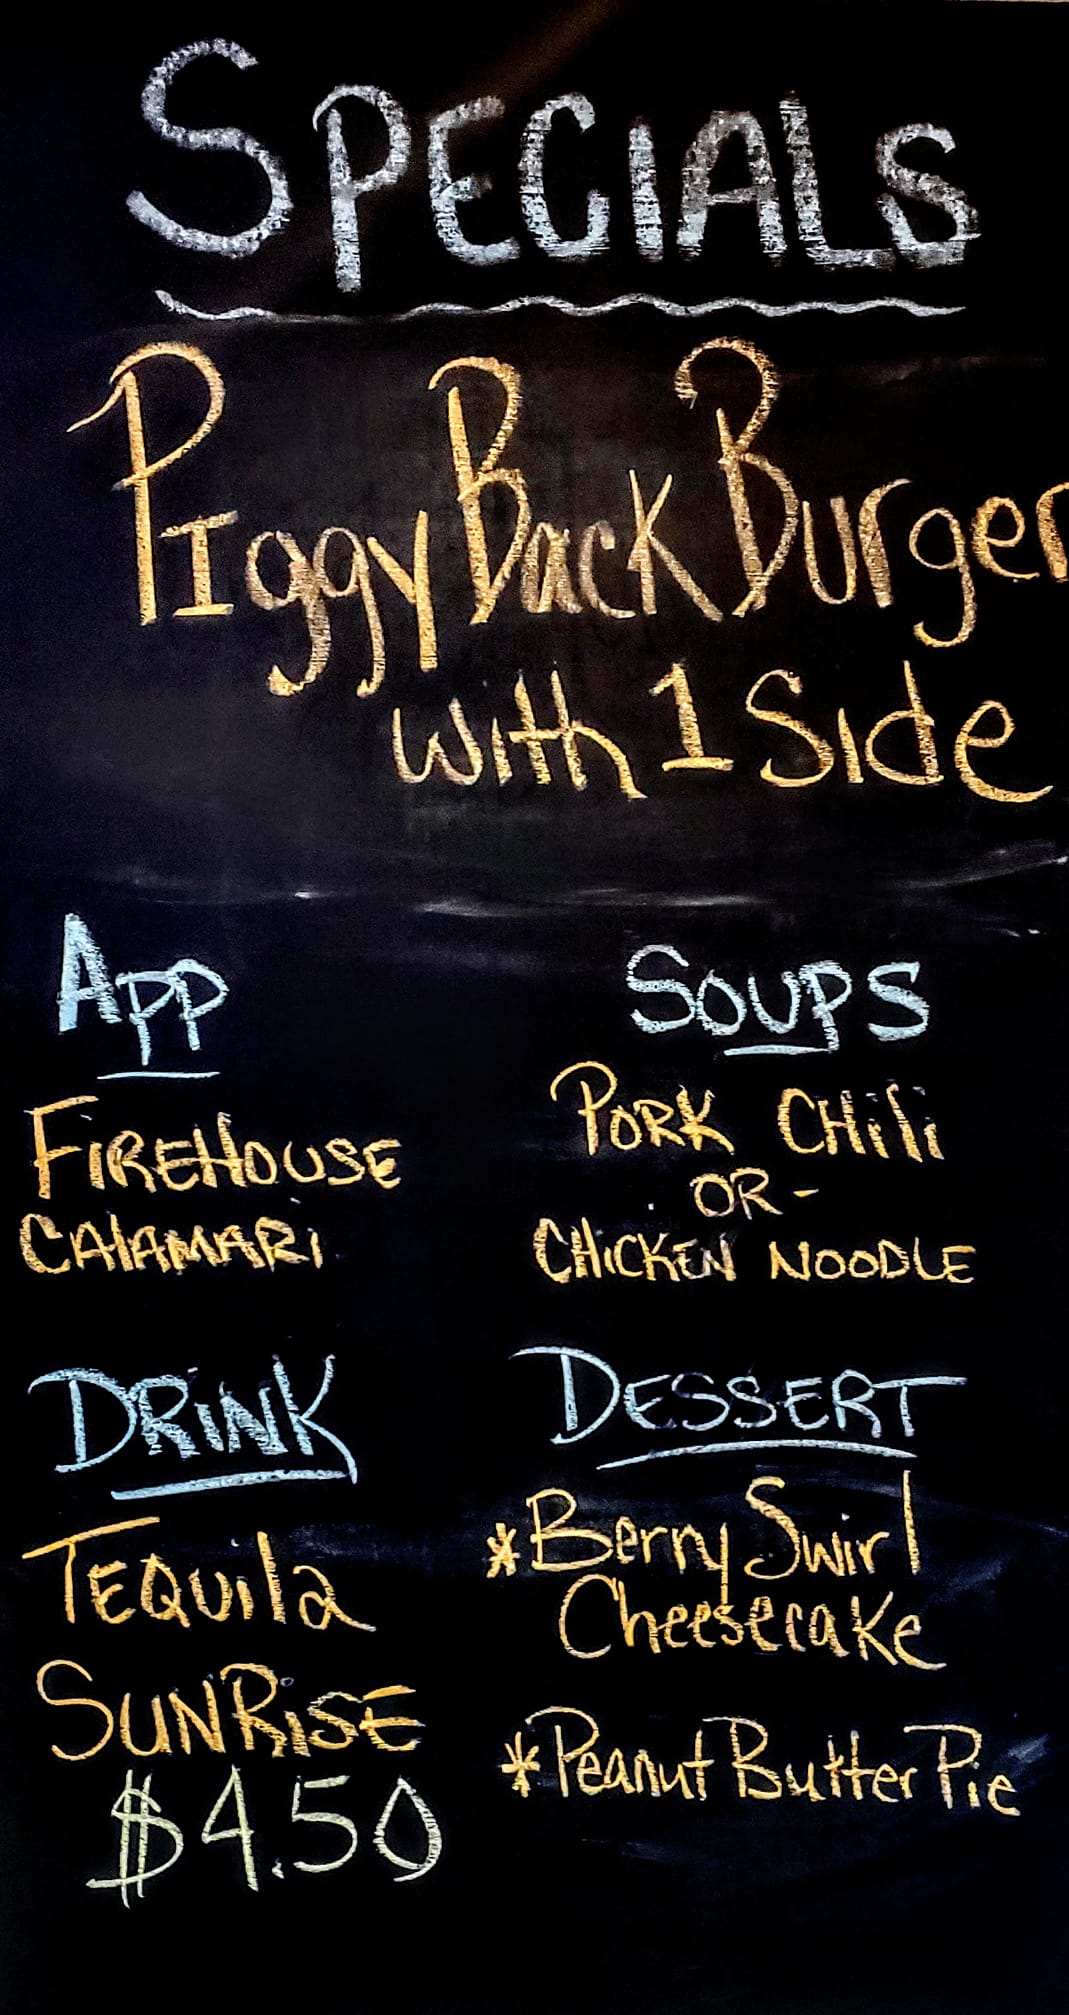 SPECIALS
PIggy Back Burger
with 1 Side
APP
FiREHOUSE
CAlAMARi
SOUPS
PORK CHili
OR -
CHiCKEN NOODLE
DRiNK
TEQUila
SUNRiSE
$4.50
DESSERT
*Berry Swirl
Cheesecake
*Peanut Butter Pie